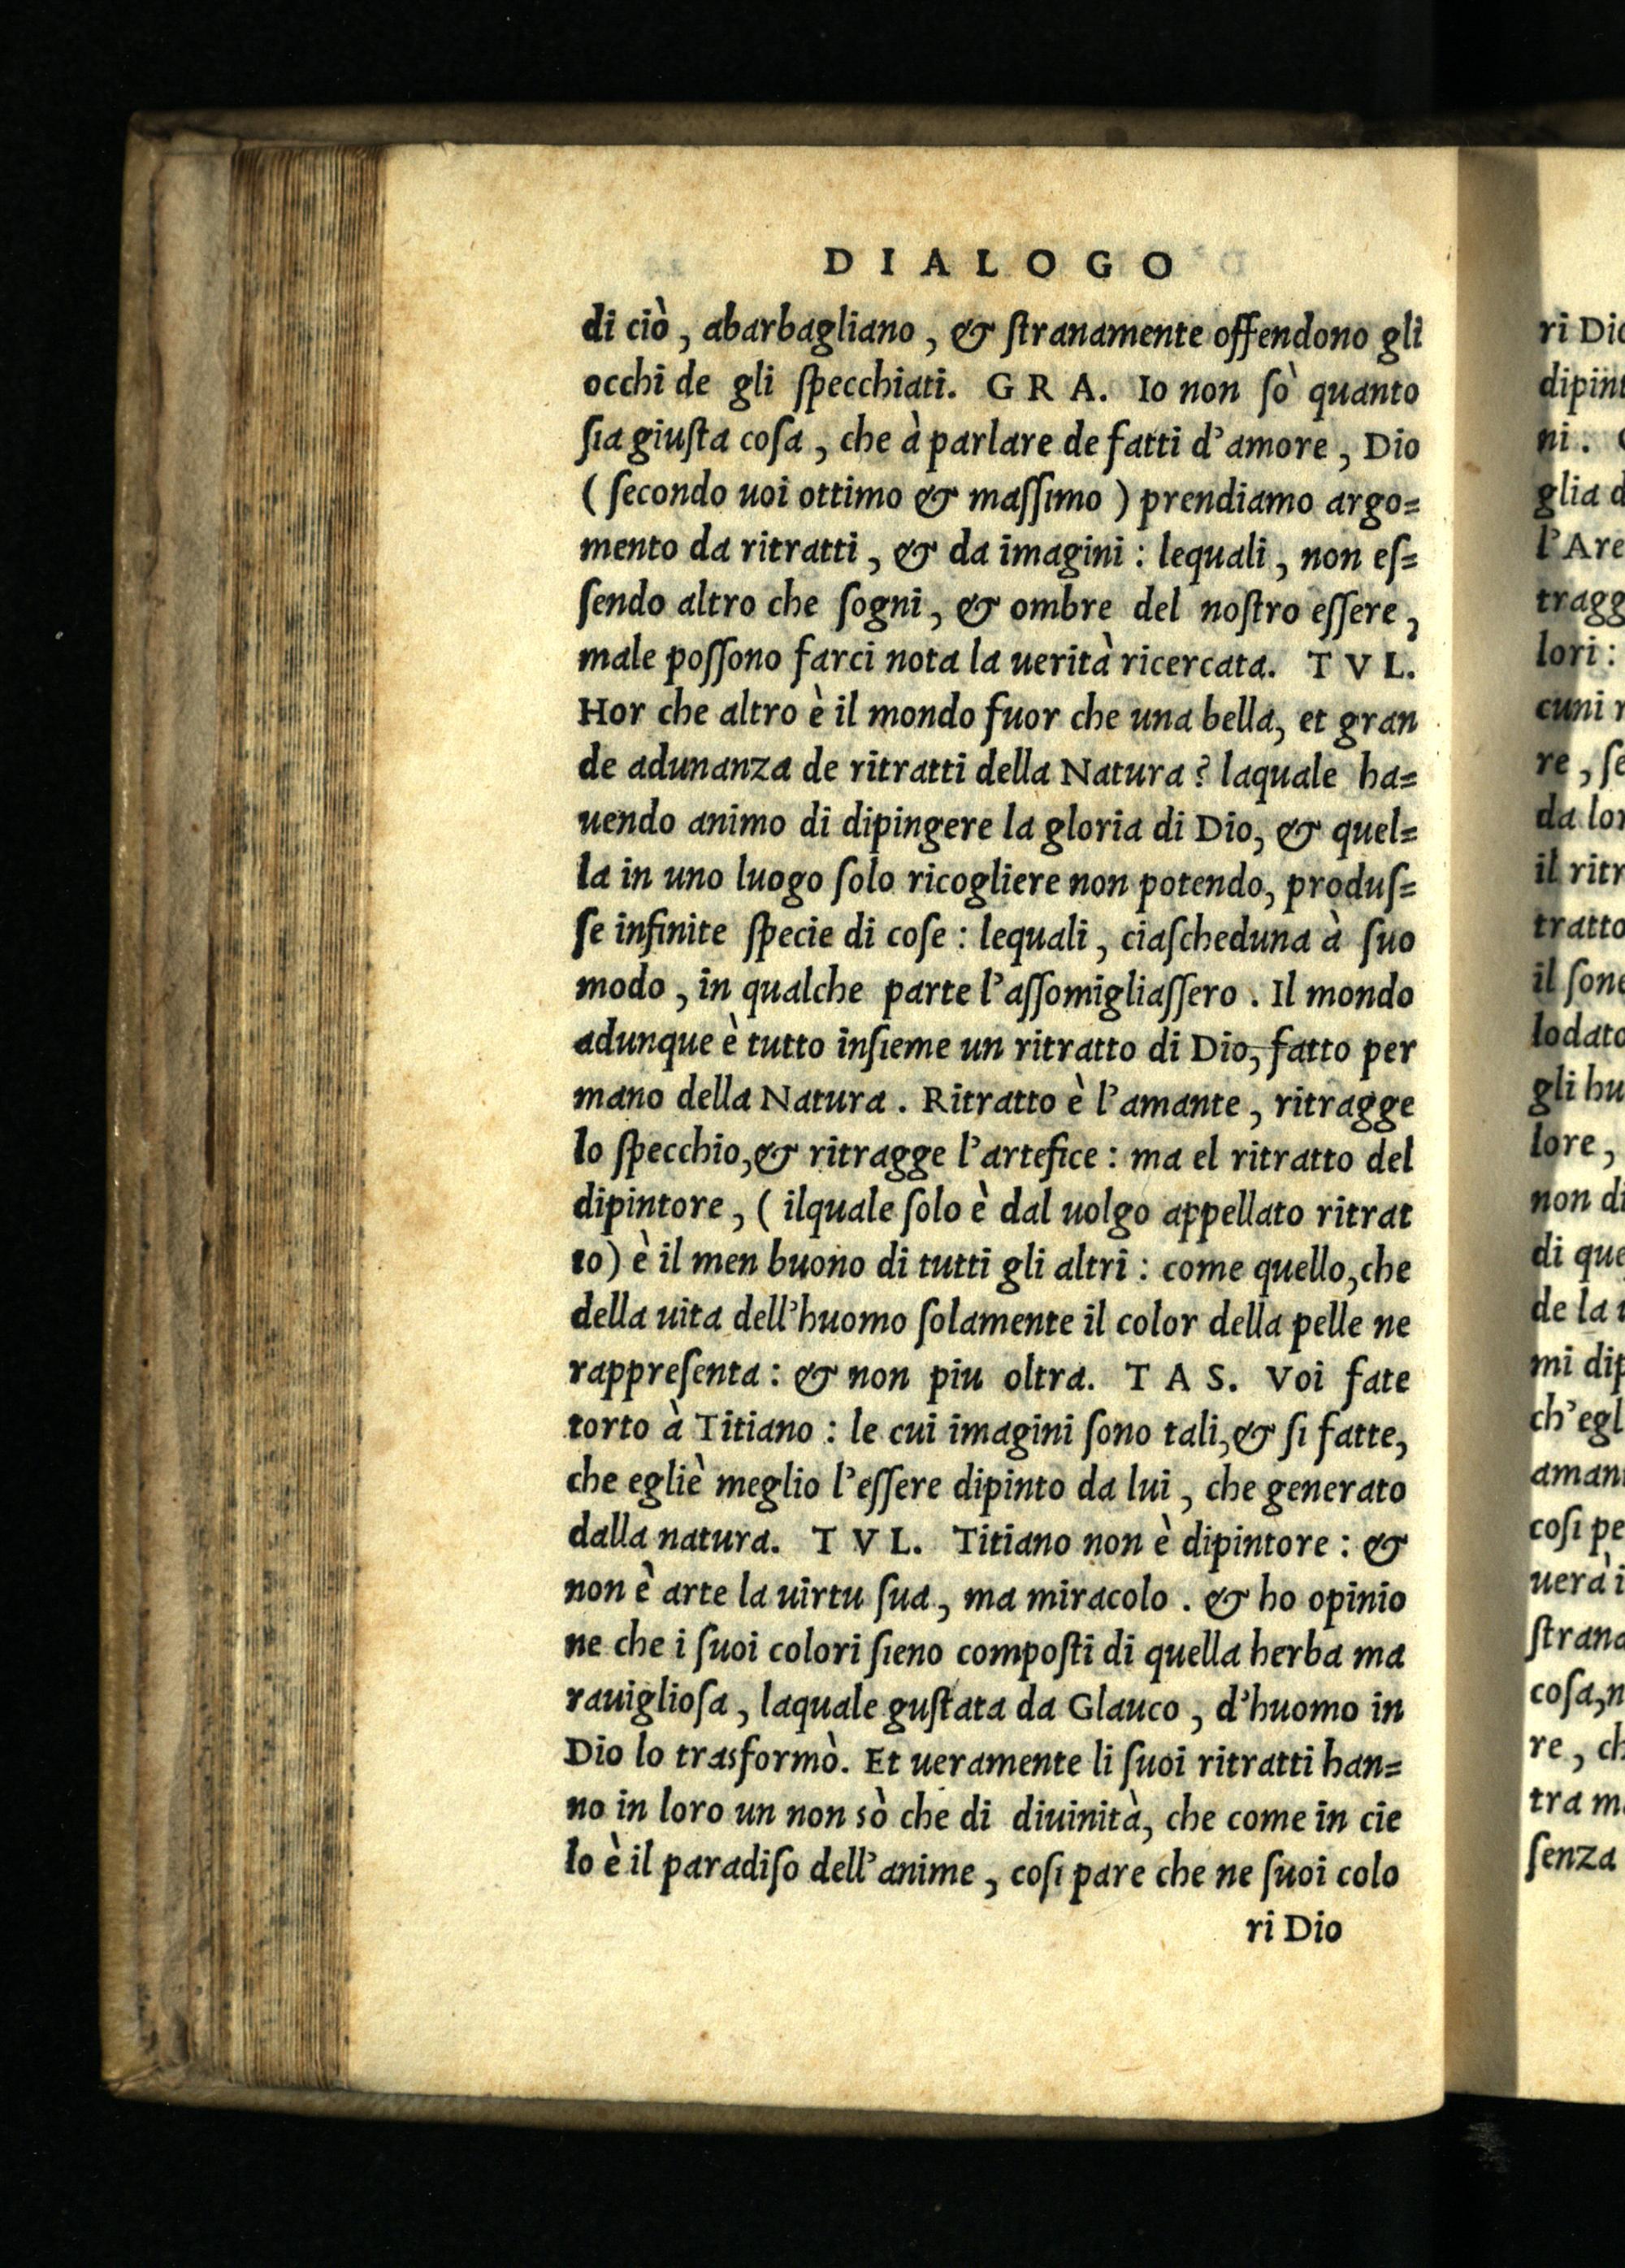 DIALOGO
di ciò, abarbagliano, & ſtranamente offendono gli
occhi de gli ſpecchiati. GRA. Io non ſò quanto
ſia giuſta coſa, che à parlare de fatti d'amore, Dio
(ſecondo uoi ottimo & maſſimo) prendiamo argo=
mento da ritratti, & da imagini: lequali, non eſ=
ſendo altro che ſogni, & ombre del noſtro eſſere,
male poſſono farci nota la uerità ricercata. TVL.
Hor che altro è il mondo fuor che una bella, et gran
de adunanza de ritratti della Natura? laquale ha=
uendo animo di dipingere la gloria di Dio, & quel=
la in uno luogo ſolo ricogliere non potendo, produſ=
ſe infinite ſpecie di coſe: lequali, ciaſcheduna à ſuo
modo, in qualche parte l'aſſomigliaſſero. Il mondo
adunque è tutto inſieme un ritratto di Dio, fatto per
mano della Natura. Ritratto è l'amante, ritragge
lo ſpecchio,& ritragge l'artefice: ma el ritratto del
dipintore, (ilquale ſolo è dal uolgo appellato ritrat
to) è il men buono di tutti gli altri: come quello,che
della uita dell'huomo ſolamente il color della pelle ne
rappreſenta: & non piu oltra. TAS. Voi fate
torto à Titiano: le cui imagini ſono tali,& ſi fatte,
che egliè meglio l'eſſere dipinto da lui, che generato
dalla natura. TVL. Titiano non è dipintore: &
non è arte la uirtu ſua, ma miracolo. & ho opinio
ne che i ſuoi colori ſieno compoſti di quella herba ma
rauiglioſa, laquale guſtata da Glauco, d'huomo in
Dio lo trasformò. Et ueramente li ſuoi ritratti han=
no in loro un non sò che di diuinità, che come in cie
lo è il paradiſo dell'anime, coſi pare che ne ſuoi colo
ri Dio
ri Dio
dipint
ni.
glia d
l'Are
tragg
lori:
cuni r
re, ſe
da lor
il ritr
tratto
il ſone
lodato
gli hu
lore,
non di
di que
de la
mi dip
ch'egl
aman
coſi pe
uerà i
ſtrana
coſa,n
re, ch
tra m
ſenza